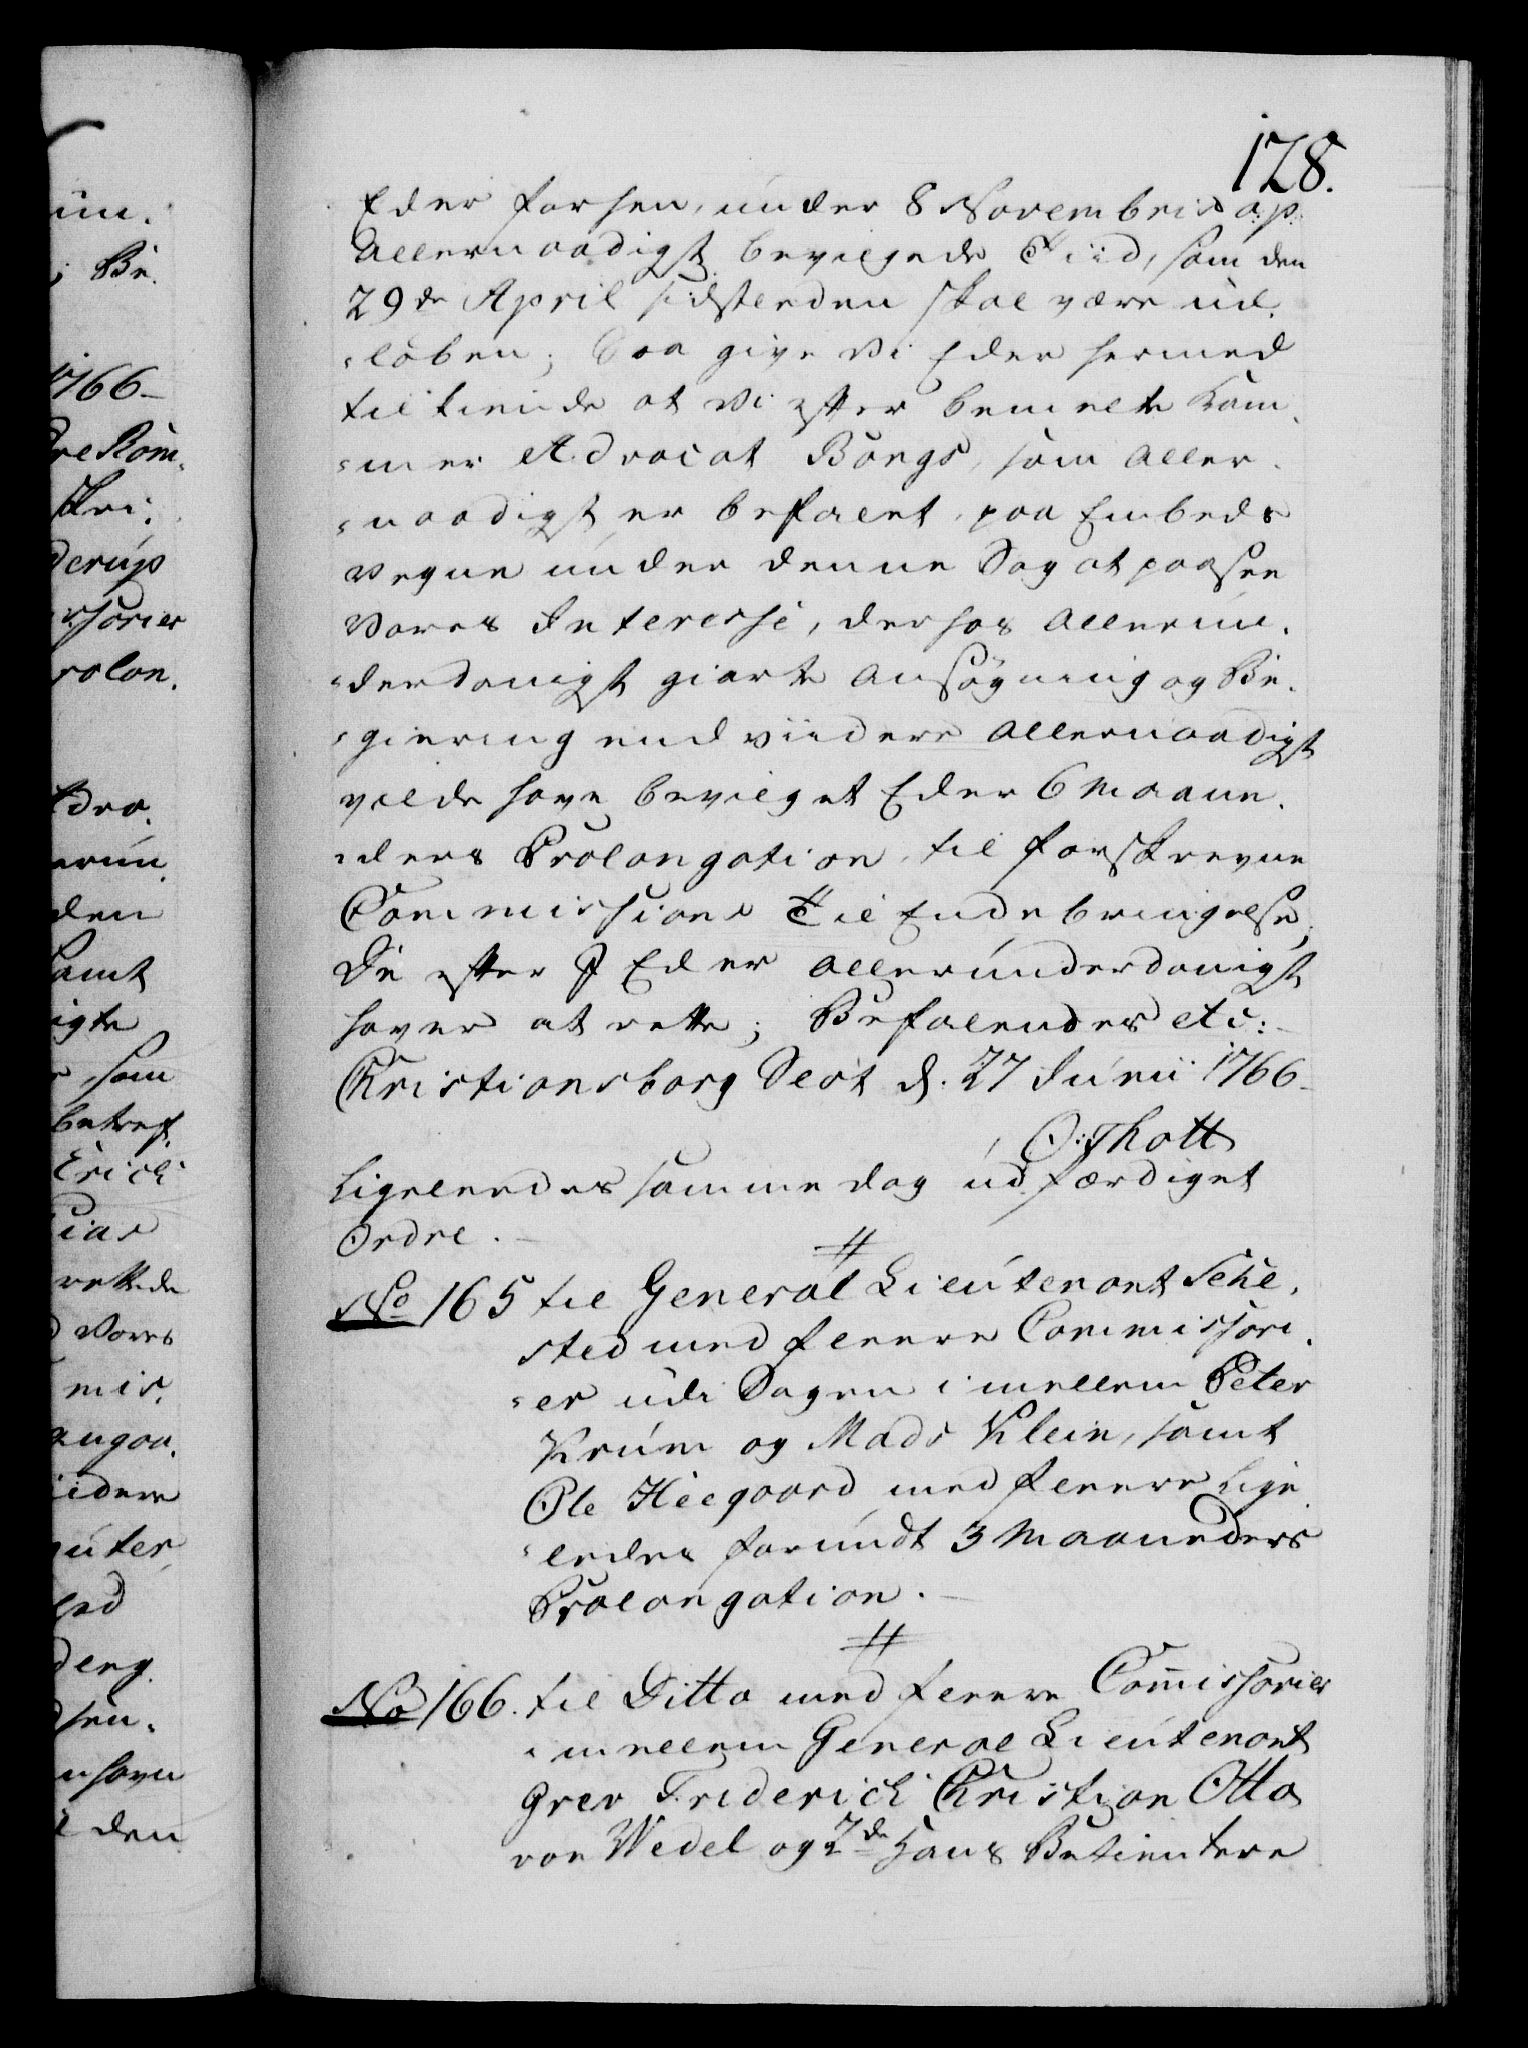 128.
Eder forhen, under 8 Novembris a: p:
Allernaadigst bevilgede Tiid, som den
29de April sidstleden skal være ud-
løben; Saa give Vi Eder hermed
tilkiende at Vi efter bemelte Kam-
mer Advocat Bangs, som Aller-
naadigst er befalet, paa Embeds
Vegne under denne Sag at paasee
Vores Interesse, derhos Allerun-
derdanigst giorte Ansøgning og Be-
giering end viidere Allernaadigst
vilde have bevilget Eder 6 Maane-
ders Prolongation, til forskrevne
Commissions Til Endebringelse,
De efter I Eder Allerunderdanigst
haver at rette; Befalendes etc:
Christiansborg Slot d. 27 Junii 1766
O: Thott
Ligeleedes samme dag udfærdiget
Ordre.
No 165 til General Lieutenant Sehe-
sted med fleere Commissari-
er udi Sagen imellem Peter
Krum og Mads Klein, samt
Ole Hiegaard med fleere lige-
ledes forundt 3 Maaneders
Prolongation.
No 166. til Ditto med fleere Commissarier
imellem General Lieutenant
Grev Friderich Christian Otto
von Wedel og 2de Hans Betientere
um.
; Be-
1766
Kom-
derup
rolon-
erun-
den
samt
igte
som
betref-
Erich
rettede
Vores
mis-
idere
den